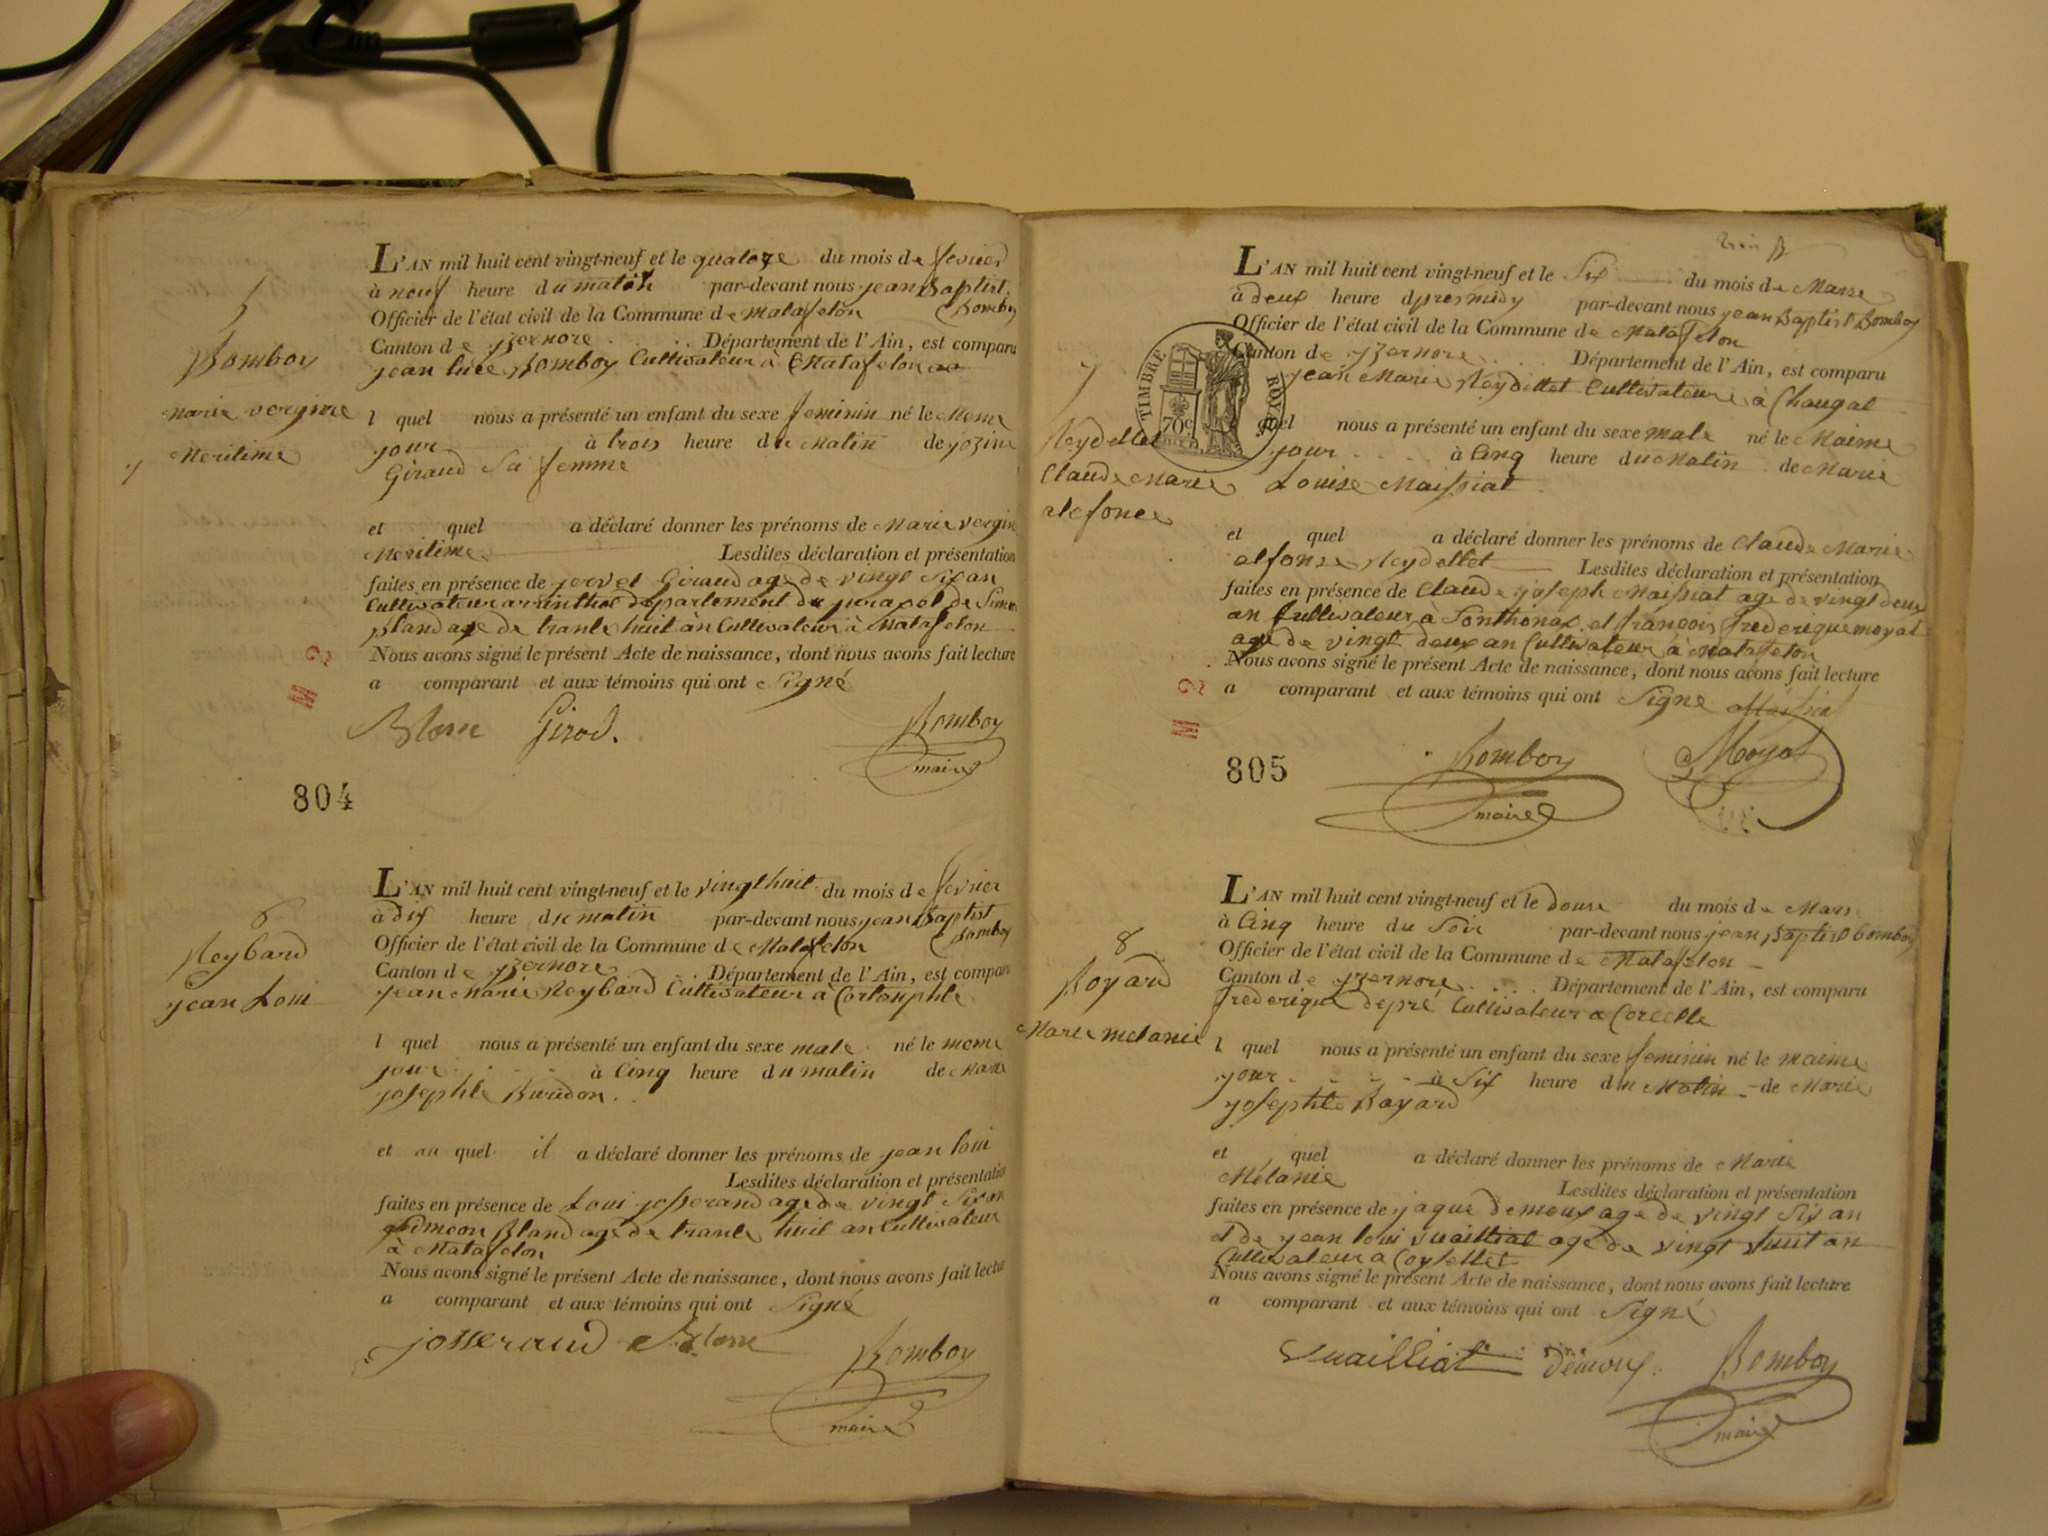 5
Bomboy
Marie vergine
Merilime
L'AN mil huit cent vingt-neuf et le quatoze du mois de fevrier
à neuf heure du matin par-devant nous jean Baptist
Bomboy
Officier de l'état civil de la Commune de Matafelon
Canton de yzernore Département de l'Ain, est comparu
jean luce Bomboy Cultivateur à Matafelon
l quel nous a présenté un enfant du sexe feminin né le meme
jour à trois heure du Matin de jozine
Giraud Sa femme
et quel a déclaré donner les prénoms de Marie vergin
Merilime Lesdites déclaration et présentation
faites en présence de Giraud age de vingt Six an
Cultivateur departement du jura et de
pland age de trante huit an Cultivateur à Matafelon
Nous avons signé le présent Acte de naissance, dont nous avons fait lecture
a comparant et aux témoins qui ont Signé
Girod. Bomboy
maire
804
6
Reybard
jean Loui
L'AN mil huit cent vingt-neuf et le vingt huit du mois de fevrier
à dix heure du matin par-devant nous jean Baptist
Bomboy
Officier de l'état civil de la Commune de Matafelon
Canton de yzernore Département de l'Ain, est comparu
jean Marie Reybard Cultivateur à
l quel nous a présenté un enfant du sexe male né le meme
jour à Cinq heure du matin de Marie
josephte Burdon
et au quel il a déclaré donner les prénoms de jean loui
Lesdites déclaration et présentation
faites en présence de Loui josserand age de vingt Six an
Bland age de trante huit an Cultivateur
à Matafelon
Nous avons signé le présent Acte de naissance, dont nous avons fait lecture
a comparant et aux témoins qui ont Signé
josseraud Bomboy
maire
7
Reydellet
Claude Marie
alefonce
TIMBRE ROYAL
70c
L'AN mil huit cent vingt-neuf et le Six du mois de Marse
à deux heure dpres midy par-devant nous jean Baptist Bomboy
Officier de l'état civil de la Commune de Matafelon
Canton de yzernore Département de l'Ain, est comparu
jean Marie Reydellet Cultivateur à Chougat
quel nous a présenté un enfant du sexe male né le Maime
jour à Cinq heure du Matin de Marie
Louise Maissiat
et quel a déclaré donner les prénoms de Claude Marie
alfonse Reydellet Lesdites déclaration et présentation
faites en présence de Claude joseph Maissiat age de vingt deux
an Cultivateur à Sonthonax et françois frederique moyat
age de vingt deux an Cultivateur à Matafelon
Nous avons signé le présent Acte de naissance, dont nous avons fait lecture
a comparant et aux témoins qui ont Signe Maissiat
805 Bomboy Moyat
maire
8
Boyard
Marie melanie
L'AN mil huit cent vingt-neuf et le douse du mois de Mars
à Cinq heure du Soir par-devant nous jean Baptist bomboy
Officier de l'état civil de la Commune de Matafelon
Canton de yzernore Département de l'Ain, est comparu
frederique depré Cultivateur a Corcelle
l quel nous a présenté un enfant du sexe feminin né le maime
jour à Six heure du Matin de Marie
josephte Bayard
et quel a déclaré donner les prénoms de Marie
Mélanie Lesdites déclaration et présentation
faites en présence de jaque demoux age de vingt Six an
et de jean loui vuailliat age de vingt huit an
Cultivateur a Coysellet
Nous avons signé le présent Acte de naissance, dont nous avons fait lecture
a comparant et aux témoins qui ont Signé
Vuailliat demoux Bomboy
maire